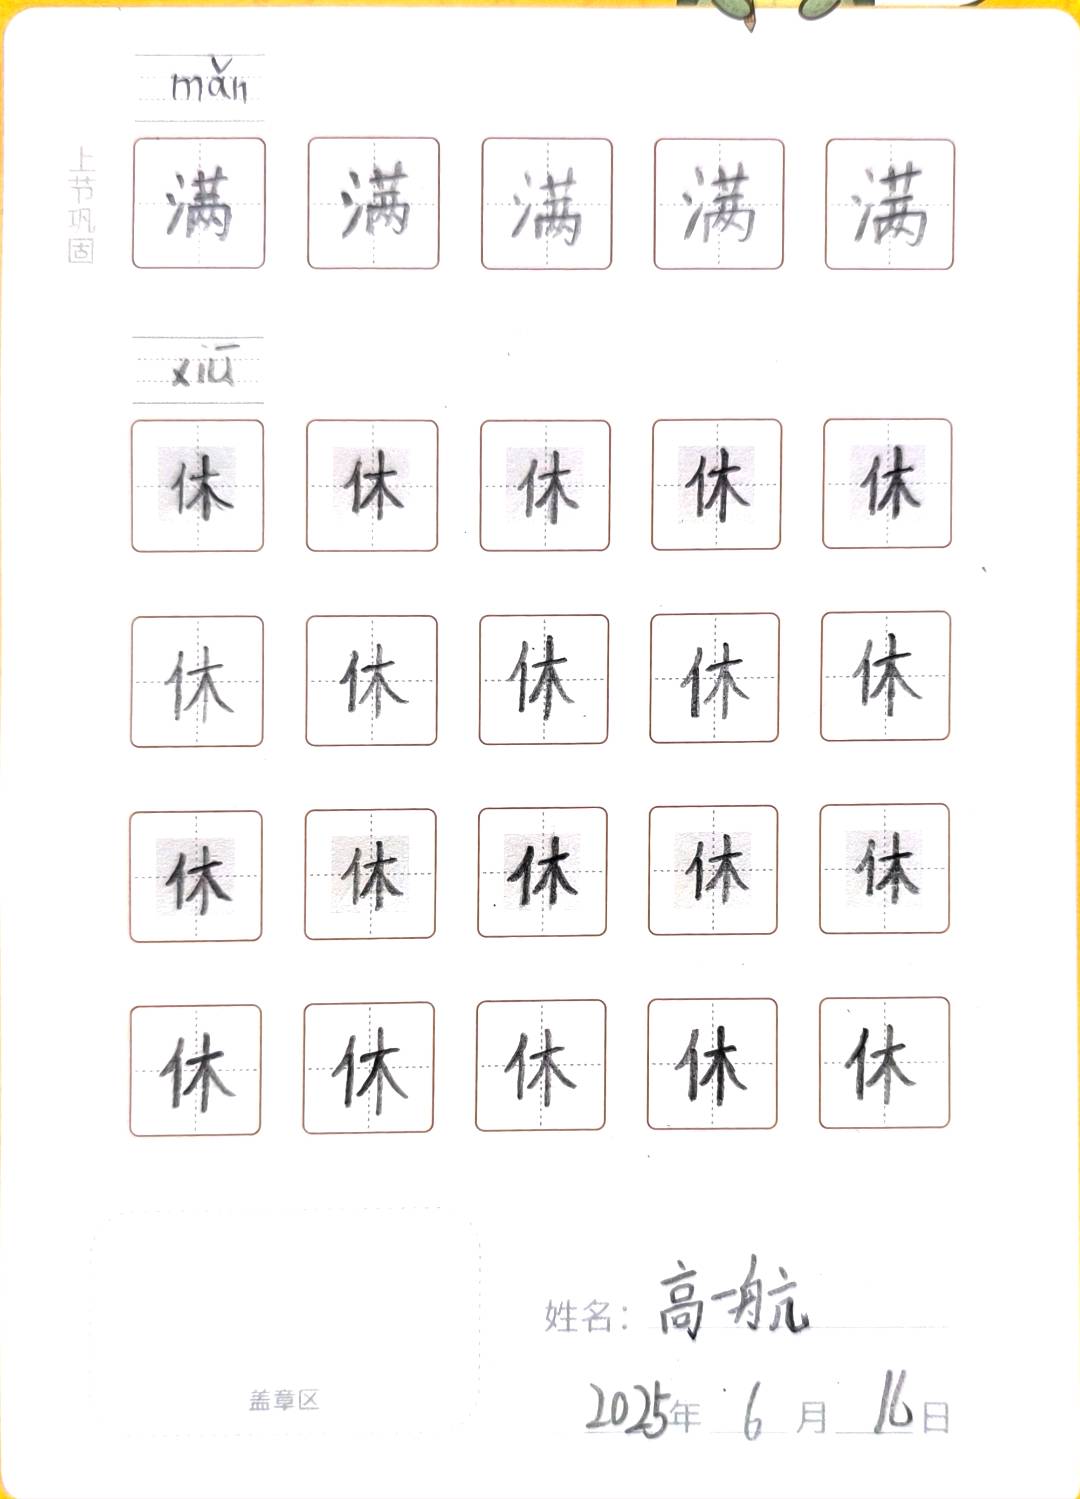 mǎn
上节巩固
满 满 满 满 满
xiū
休 休 休 休 休
休 休 休 休 休
休 休 休 休 休
休 休 休 休 休
姓名：高一航
盖章区
2025年 6 月 16 日